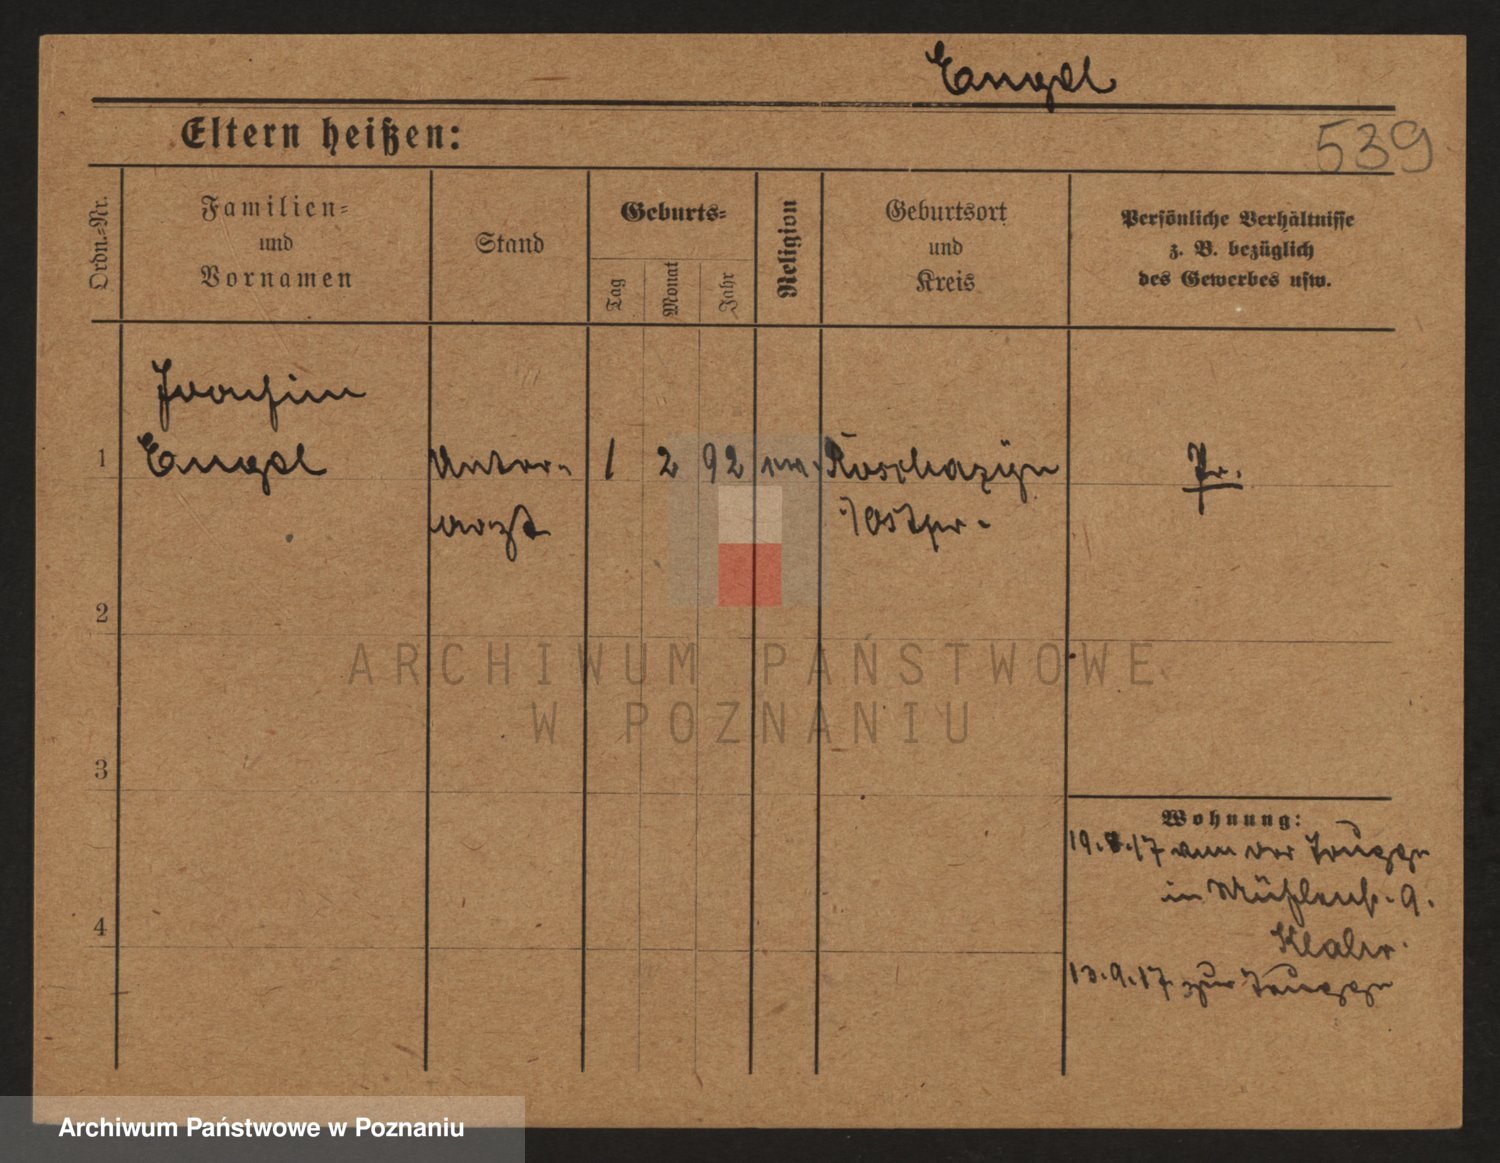 Engel
Eltern heißen:
539
Ordn.-Nr.
Familien-
und
Vornamen
Stand
Geburts-
Tag
Monat
Jahr
Religion
Geburtsort
und
Kreis
Persönliche Verhältnisse
z. B. bezüglich
des Gewerbes usw.
Joachim
1 Engel Unter- 1 2 92 Pr.
arzt Ostpr.
2
3
4
Wohnung:
19. .17 von der Truppe
in Mühlenstr. 9.
13.9.17 zur Truppe
ARCHIWUM PAŃSTWOWE
W POZNANIU
Archiwum Państwowe w Poznaniu